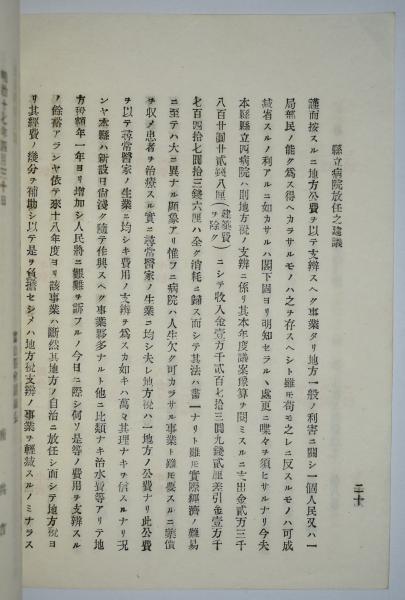 二十
縣立病院放任之建議
謹而按スルニ地方公費ヲ以テ支辨スヘク事業タリ地方一般ノ利害ニ關シ一個人民又ハ一
局部民ノ能ク爲ス得ヘカラサルモノハ之ヲ存スヘシト雖𪜈苟モ之レニ反スルモノハ可成
减省スルノ利アルニ如カサルハ閣下固ヨリ明知セラル丶處更ニ喋々ヲ須ヒサルナリ今夫
本縣縣立四病院ハ則地方稅ノ支辨ニ係リ其本年度議案豫算ヲ閲ミスルニ支出金貳万三千
八百廿圓廿貳錢八厘(建築費ヲ除ク)ニシテ收入金壹万六千貳百七拾三圓九錢貳厘差引金壹万千
七百四拾七圓拾三錢六厘ハ全ク消耗ニ歸ス而シテ其法ハ書一ナリト雖𪜈實際經濟ノ難易
ニ至テハ大ニ異ナル顯象アリ惟フニ病院ハ人生欠ク可カラサル事業ト雖𪜈要スルニ藥價
ヲ收メ患者ヲ治療スル實ニ尋常醫家ノ生業ニ均シ夫レ地方稅ハ一地方ノ公費ナリ此公費
ヲ以テ尋常醫家ノ生業ニ均シキ費用ノ支辨ヲ爲スカ如キハ萬々其理ナキヲ信スルナリ况
ンヤ本縣ハ新設日尙淺ク隨テ作興スヘク事業夥多ナルト他ニ比類ナキ治水費等アリテ地
方稅額年一年ヨリ増加シ人民將ニ艱難ヲ訴フルノ今日ニ際シ何ソ是等ノ費用ヲ支辨スル
ノ餘裕アランヤ依テ來十八年度ヨリ該事業ハ斷然其地方ノ自治ニ放任シ而シテ地方稅ヨ
リ其經費ノ幾分ヲ補助シ以テ是ヲ負擔セシメハ地方稅支辨ノ事業ヲ輕减スルノミナラス